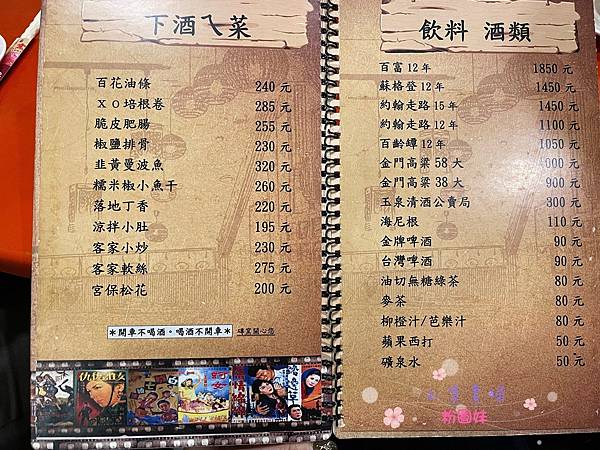 下酒ㄟ菜
百花油條 240 元
XO培根卷 285 元
脆皮肥腸 255 元
椒鹽排骨 230 元
韭黃曼波魚 320 元
糯米椒小魚干 260 元
落地丁香 220 元
涼拌小肚 195 元
客家小炒 230 元
客家軟絲 275 元
宮保松花 200 元
*開車不喝酒。喝酒不開車* 磚窯關心您
飲料 酒類
百富12年 1850 元
蘇格登12年 1450 元
約翰走路15年 1450 元
約翰走路12年 1100 元
百齡罈12年 1050 元
金門高粱58大 1000 元
金門高粱38大 900 元
玉泉清酒公賣局 300 元
海尼根 110 元
金牌啤酒 90 元
台灣啤酒 90 元
油切無糖綠茶 80 元
麥茶 80 元
柳橙汁/芭樂汁 80 元
蘋果西打 50 元
礦泉水 50 元
粉圓妹